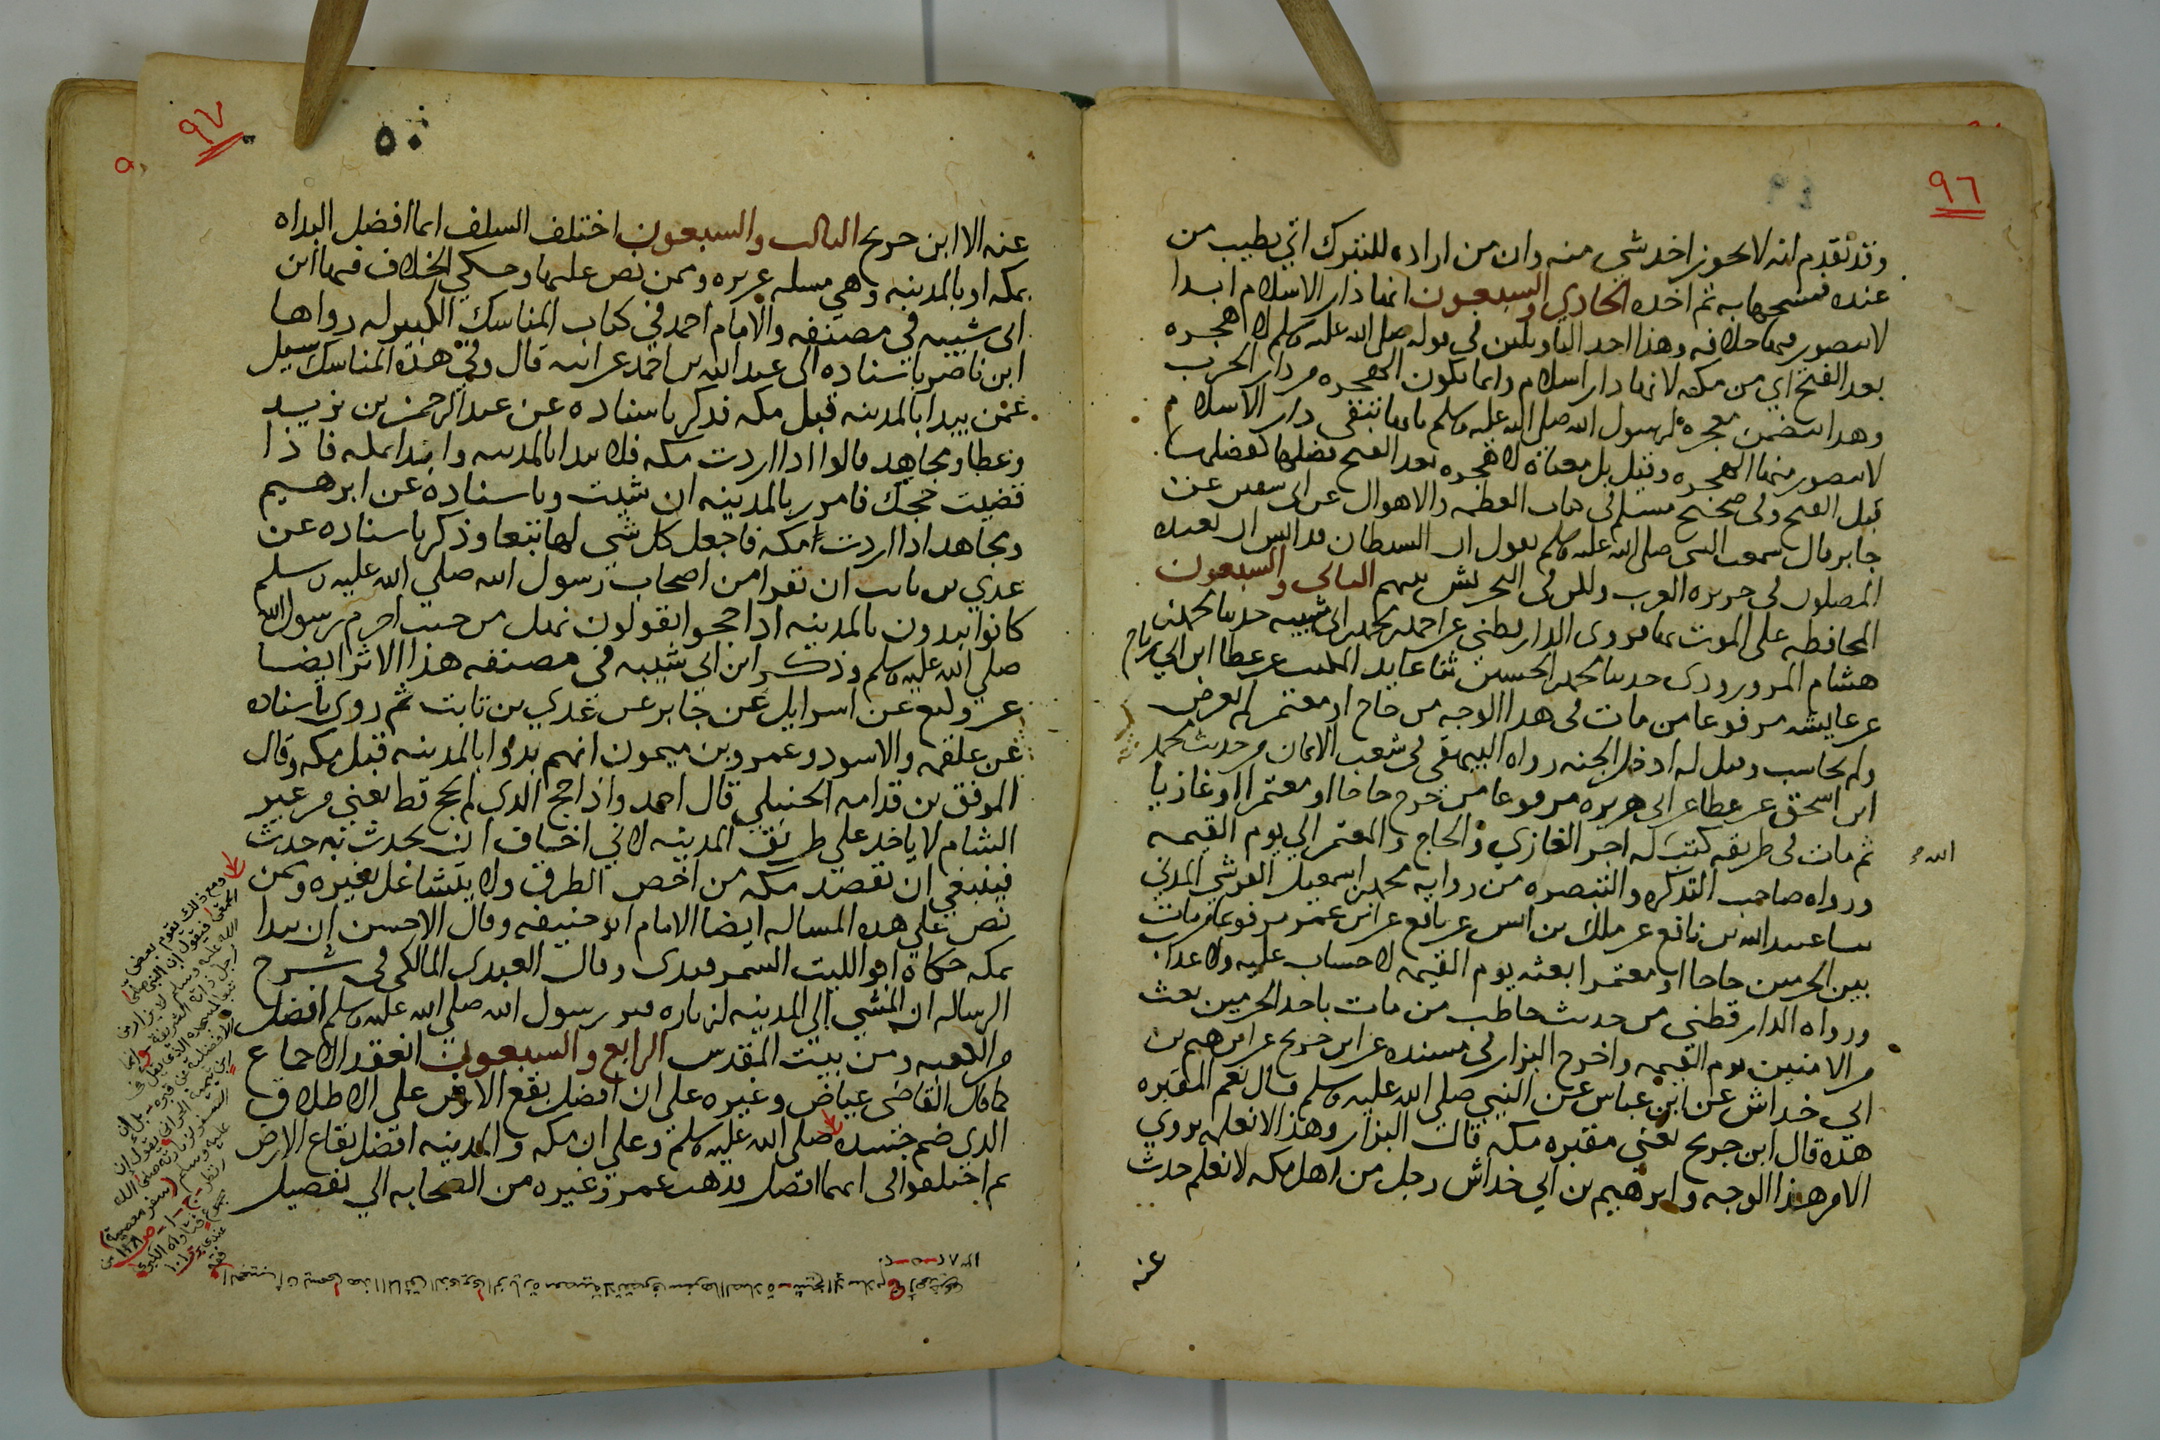 ٩٦
وقد تقدم انه لا يجوز اخذ شي منه وان من اراده للتبرك اتي بطيب من
عنده فمسحها به ثم اخذه الحادي والسبعون انها دار الاسلام ابدا
لا يتصور فيها خلافه وهذا احد التاويلين في قوله صلى الله عليه وسلم لا هجره
بعد الفتح اي من مكه لانها دار اسلام وانما يكون الهجره من دار الحرب
وهذا يتضمن معجزه لرسول الله صلى الله عليه وسلم بانها تبقى دار الاسلام
لا يتصور منها الهجره وقيل بل معناه لا هجره بعد الفتح فضلها كفضلها
قبل الفتح وفي صحيح مسلم في العظمه والاهوال عن ابي سفين عن
جابر قال سمعت النبي صلى الله عليه وسلم يقول ان الشيطان قد ايس ان يعبده
المصلون في جزيره العرب ولكن في التحريش بينهم الثاني والسبعون
المحافظه على الموت بها فروى الدارقطني عن احمد بن محمد بن ابي شيبه حدثنا محمد بن
هشام المرورودى حدثنا محمد بن الحسين ثنا عايد المكتب عن عطا ابن ابي رباح
عن عايشه مرفوعا من مات في هذا الوجه من حاج او معتمر لم يعرض
ولم يحاسب وقيل له ادخل الجنه رواه البيهقي في شعب الايمان من حديث محمد
ابن اسحق عن عطا عن ابي هريره مرفوعا من خرج حاجا او معتمرا او غازيا
ثم مات في طريقه كتب له اجر الغازي والحاج والمعتمر الي يوم القيمه
الله
ورواه صاحب التذكره والتبصره من روايه محمد بن اسمعيل القرشي المدني
ثنا عبد الله بن نافع عن ملك بن انس عن نافع عن ابن عمر مرفوعا من مات
بين الحرمين حاجا او معتمرا بعثه يوم القيمه لا حساب عليه ولا عذاب
ورواه الدارقطني من حديث حاطب من مات باحد الحرمين بعث
من الامنين يوم القيمه واخرج البزار في مسنده عن ابن جريج عن ابرهيم بن
ابي خداش عن ابن عباس عن النبي صلى الله عليه وسلم قال نعم المقبره
هذه قال ابن جريج يعني مقبره مكه قال البزار وهذا لا نعلمه يروي
الا من هذا الوجه وابرهيم بن ابي خداش رجل من اهل مكه لا نعلم حدث
عنه
٩٧
٥٠
عنه الا ابن جريج الثالث والسبعون اختلف السلف ايما افضل البداه
بمكه او بالمدينه وهي مسله عزيزه وممن نص عليها وحكي الخلاف فيها ابن
ابي شيبه في مصنفه والامام احمد في كتاب المناسك الكبير له رواها
ابن ناصر باسناده الى عبد الله بن احمد عن ابيه قال وفي هذه المناسك سيل
عمن يبدا بالمدينه قبل مكه فذكر باسناده عن عبد الرحمن بن يزيد
وعطا ومجاهد قالوا اذا اردت مكه فلا تبدا بالمدينه وابدا بمكه فاذا
قضيت حجك فامرر بالمدينه ان شيت وباسناده عن ابرهيم
ومجاهد اذا اردت مكه فاجعل كل شي لها تبعا وذكر باسناده عن
عدي بن ثابت ان نفرا من اصحاب رسول الله صلي الله عليه وسلم
كانوا يبدون بالمدينه اذا حجوا يقولون نهل من حيث احرم رسول الله
صلي الله عليه وسلم وذكر ابن ابي شيبه في مصنفه هذا الاثر ايضا
عن وكيع عن اسرايل عن جابر عن عدي بن ثابت ثم روى باسناده
عن علقمه والاسود وعمرو بن ميمون انهم بدوا بالمدينه قبل مكه وقال
الموفق بن قدامه الحنبلي قال احمد واذا حج الذي لم يحج قط يعني من غير
الشام لا ياخد علي طريق المدينه لاني اخاف ان يحدث به حدث
فينبغي ان نقصد مكه من اخص الطرق ولا يتشاغل بغيره وممن
نص علي هذه المساله ايضا الامام ابو حنيفه وقال الاحسن ان يبدا
بمكه حكاه ابو الليث السمرقندي وقال العبدي المالكي في شرح
الرساله ان المشي الي المدينه لزياره قبر رسول الله صلي الله عليه وسلم افضل
من الكعبه ومن بيت المقدس الرابع والسبعون انعقد الاجماع
كما قال القاضي عياض وغيره علي ان افضل بقع الارض علي الاطلاق
الذي ضم جسده صلى الله عليه وسلم وعلي ان مكه والمدينه افضل بقاع الارض
ثم اختلفوا في ايهما افضل فذهب عمر وغيره من الصحابه الي تفضيل
ومع ذلك يقوم بعض
فيقول ان النبي صلى
الله عليه وسلم لا يزار